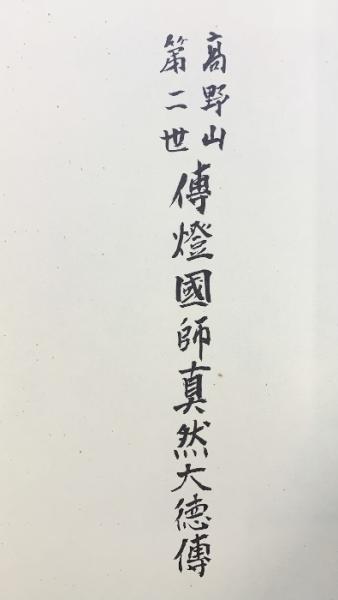 高野山
第二世
傳燈國師真然大德傳